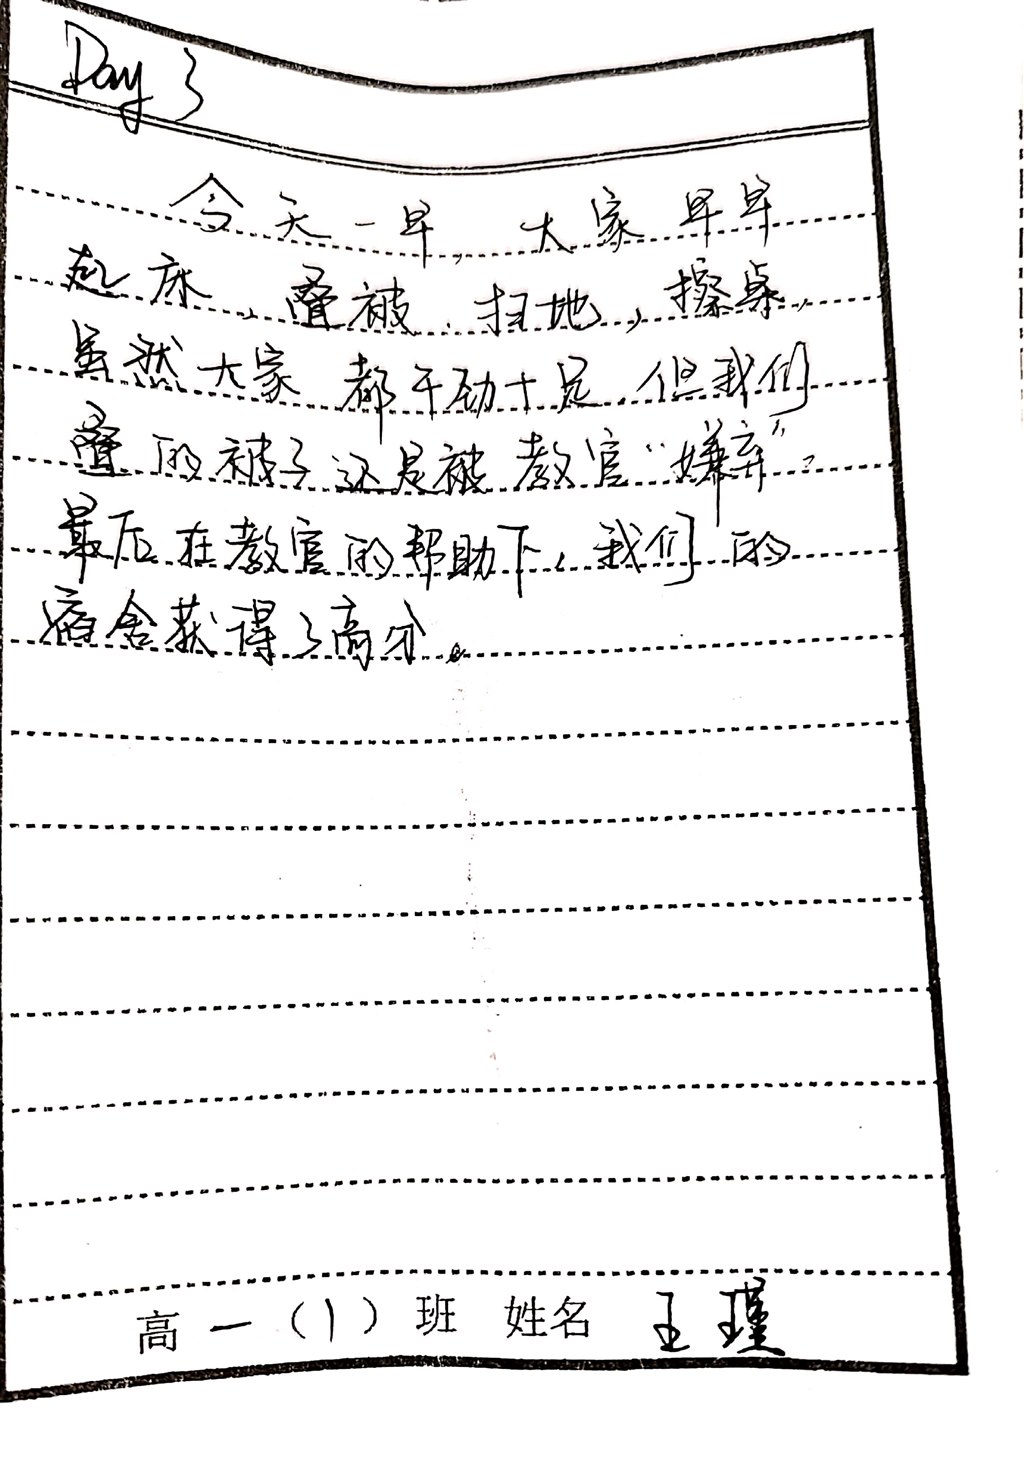 Day 3
今天一早，大家早早
起床，叠被，扫地，擦桌，
虽然大家都干劲十足，但我们
叠的被子还是被教官“嫌弃”，
最后在教官的帮助下，我们的
宿舍获得了高分。
高一（1）班 姓名 王瑾